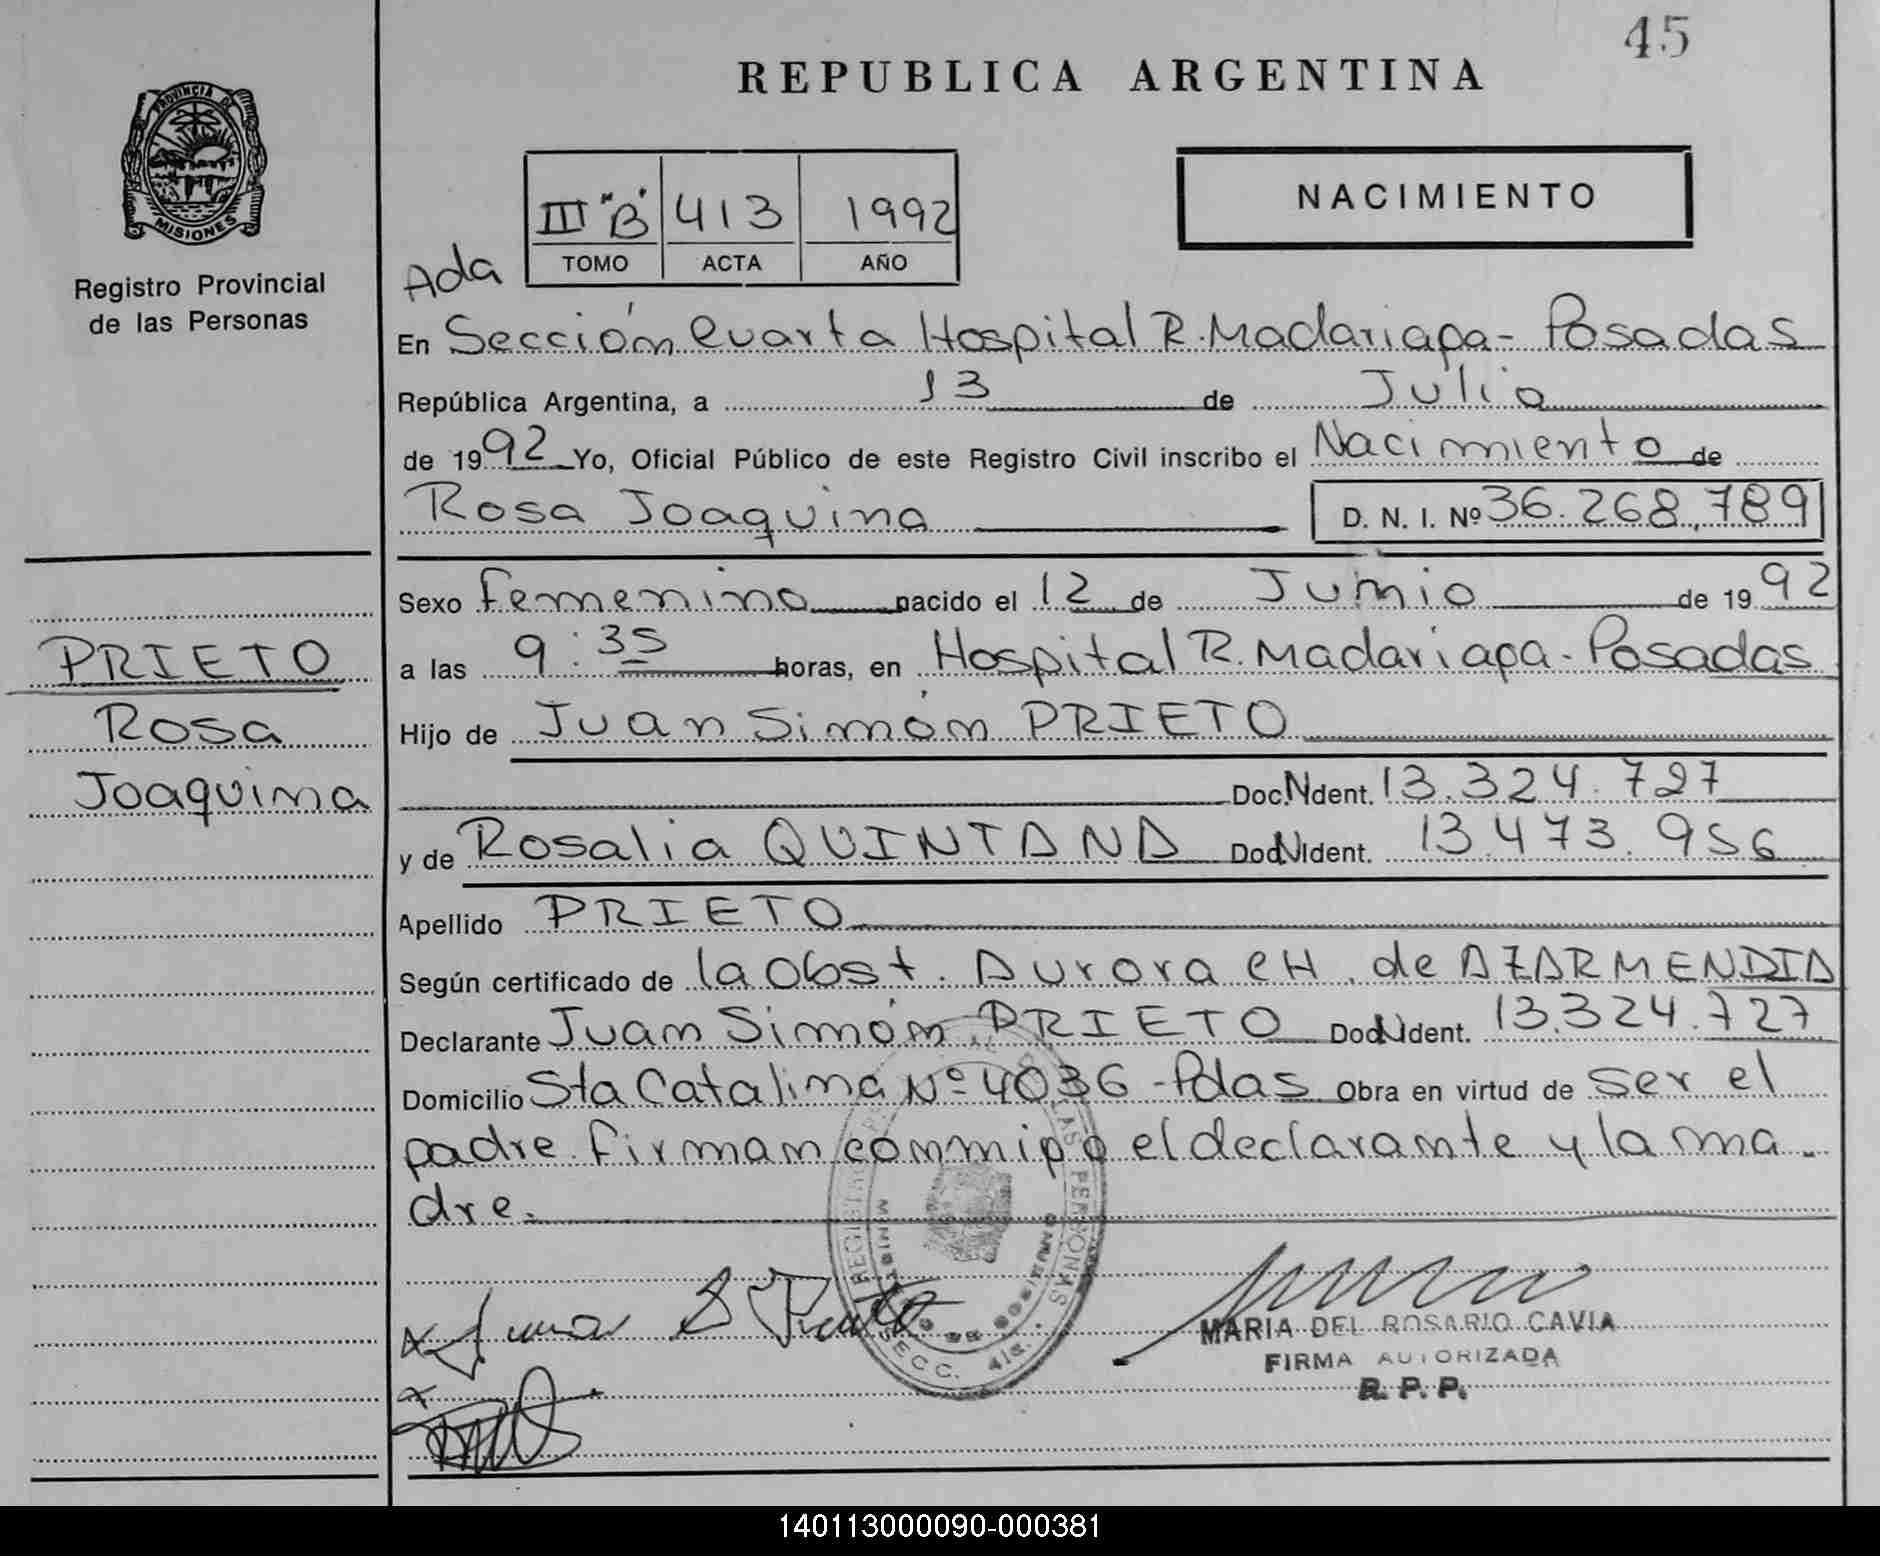 45
REPUBLICA ARGENTINA
PROVINCIA DE
MISIONES
Registro Provincial
de las Personas
III "B" 413 1992
TOMO ACTA AÑO
NACIMIENTO
Ada
En Sección Cuarta Hospital R. Madariaga - Posadas
República Argentina, a 13 de Julio
de 1992 Yo, Oficial Público de este Registro Civil inscribo el Nacimiento de
Rosa Joaquina D. N. I. Nº 36.268.789
Sexo femenino nacido el 12 de Junio de 1992
a las 9:35 horas, en Hospital R. Madariaga - Posadas
Hijo de Juan Simón PRIETO
Doc.N.Ident. 13.324.727
y de Rosalia QUINTANA Doc.N.Ident. 13.473.956
Apellido PRIETO
Según certificado de la Obst. Aurora CH. de AZARMENDIA
Declarante Juan Simón PRIETO Doc.N.Ident. 13.324.727
Domicilio Sta Catalina Nº 4036 - Pdas Obra en virtud de ser el
padre. firman conmigo el declarante y la ma-
dre.
PRIETO
Rosa
Joaquina
REGISTRO LAS PERSONAS
SECC. 4ta.
Juan S Prieto
MARIA DEL ROSARIO CAVIA
FIRMA AUTORIZADA
R. P. P.
140113000090-000381